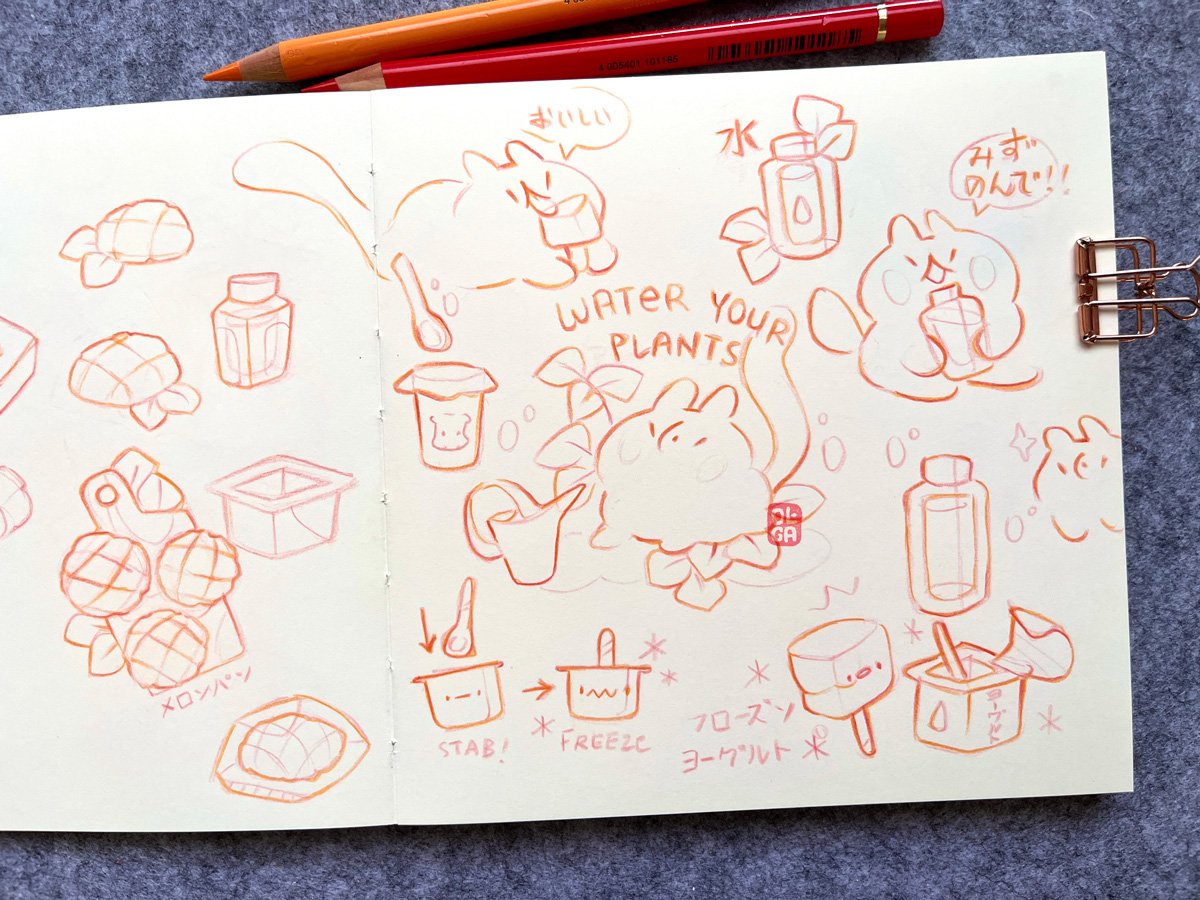 4 005401 101185
おいしい
水
みず
のんで!!
WATER YOUR
PLANTS
OL
GA
メロンパン
STAB!
FREEZE
フローズン
ヨーグルト